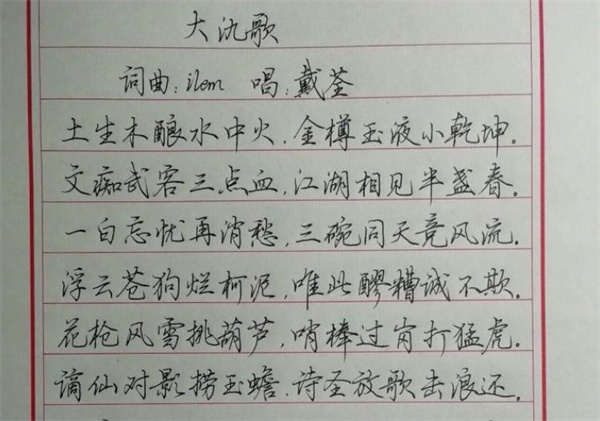 大氿歌
词曲:ilem 唱:戴荃
土生木酿水中火,金樽玉液小乾坤.
文痴武客三点血,江湖相见半盏春.
一白忘忧再消愁,三碗同天竞风流.
浮云苍狗烂柯泥,唯此醪糟诚不欺.
花枪风雪挑葫芦,哨棒过岗打猛虎.
谪仙对影捞玉蟾.诗圣放歌击浪还.